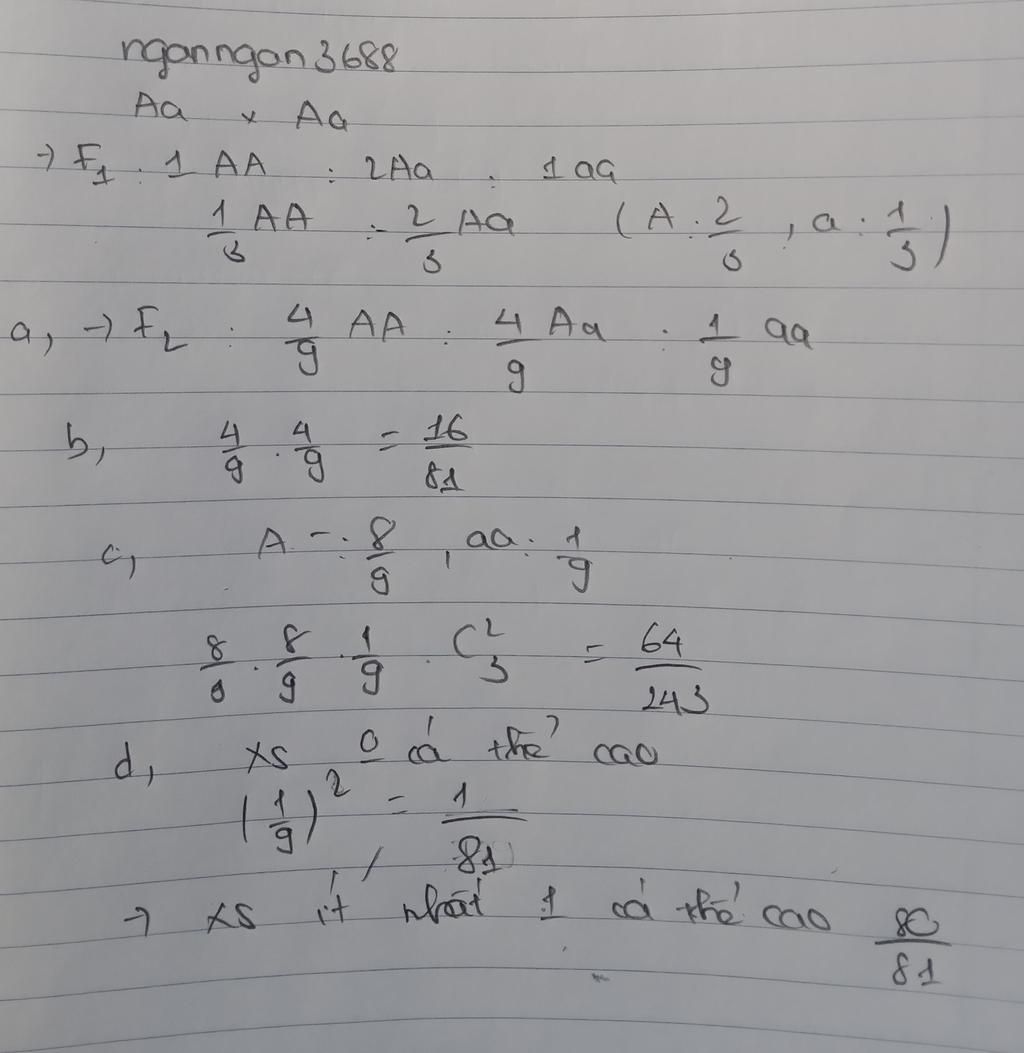 nganngan3688
Aa x Aa
→ F1 : 1 AA : 2Aa : 1 aa
1/3 AA : 2/3 Aa (A : 2/3 , a : 1/3)
a, → F2 : 4/9 AA : 4/9 Aa : 1/9 aa
b, 4/9 . 4/9 = 16/81
c, A - : 8/9 , aa : 1/9
8/9 . 8/9 . 1/9 . C²₃ = 64/243
d, XS 0 cá thể cao
(1/9)² = 1/81
→ XS ít nhất 1 cá thể cao 80/81